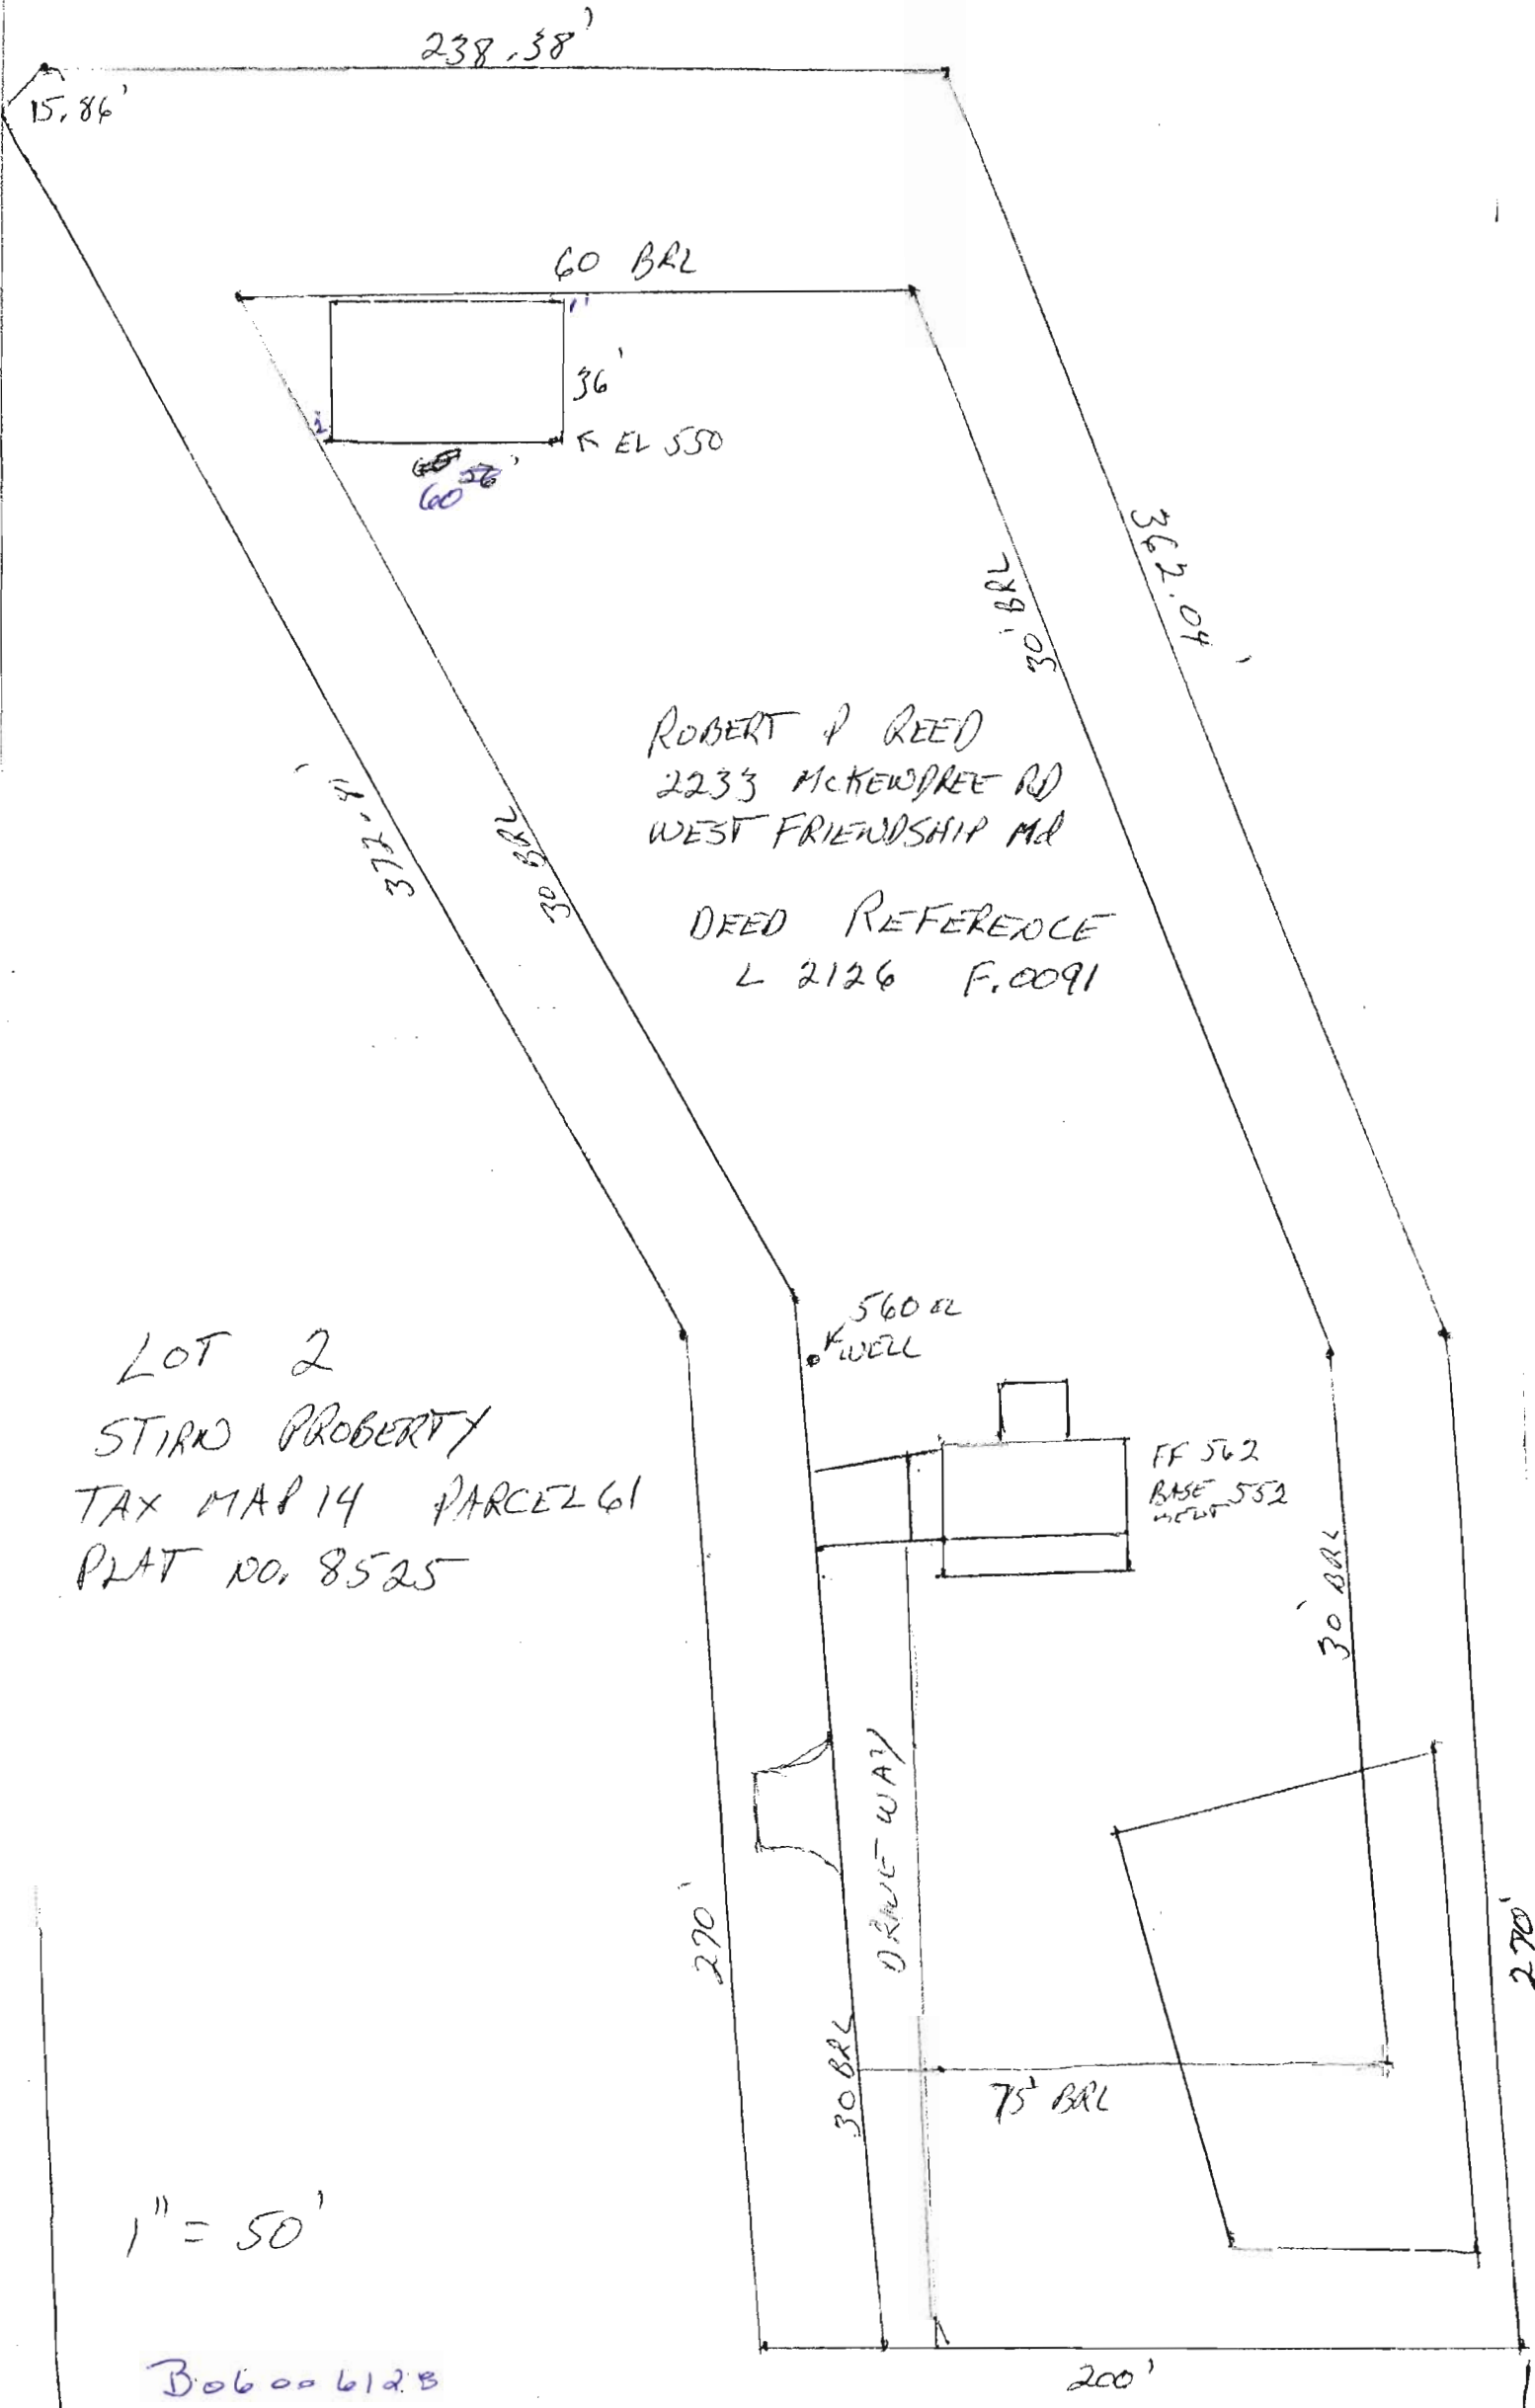 238.38'
15.86'
60 BRL
1'
36'
2'
EL 550
60
30' BRL
362.04'
ROBERT P REED
2233 McKENDREE RD
WEST FRIENDSHIP Md
372.41'
30 BRL
DEED REFERENCE
L 2126 F.0091
560 EL
WELL
LOT 2
STIRN PROBERTY
TAX MAP 14 PARCEL 61
PLAT NO. 8525
FF 562
BASE 552
MENT
30' BRL
DRIVEWAY
270'
270'
30 BRL
75' BRL
1" = 50'
B06006128
200'